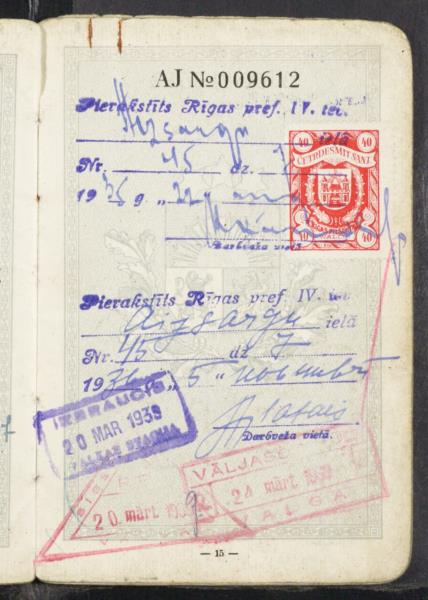 AJ №009612
Pierakstīts Rīgas pref. IV. iec.
Aizsargu ielā
Nr. 45 dz. 7
19 g. „22
Darbveža vietā
40 40
ČETRDESMIT SANT.
40 40
Pierakstīts Rīgas pref. IV. iec.
Aizsargu ielā
Nr. 45 dz 7
1936 g. „5“ novembrī
Darbveža vietā.
IZBRAUCIS
20 MAR 1939
VALKAS STACIJA
20. märt. 193
VÄLJASÕ
24 märt 1939
VALGA
— 15 —